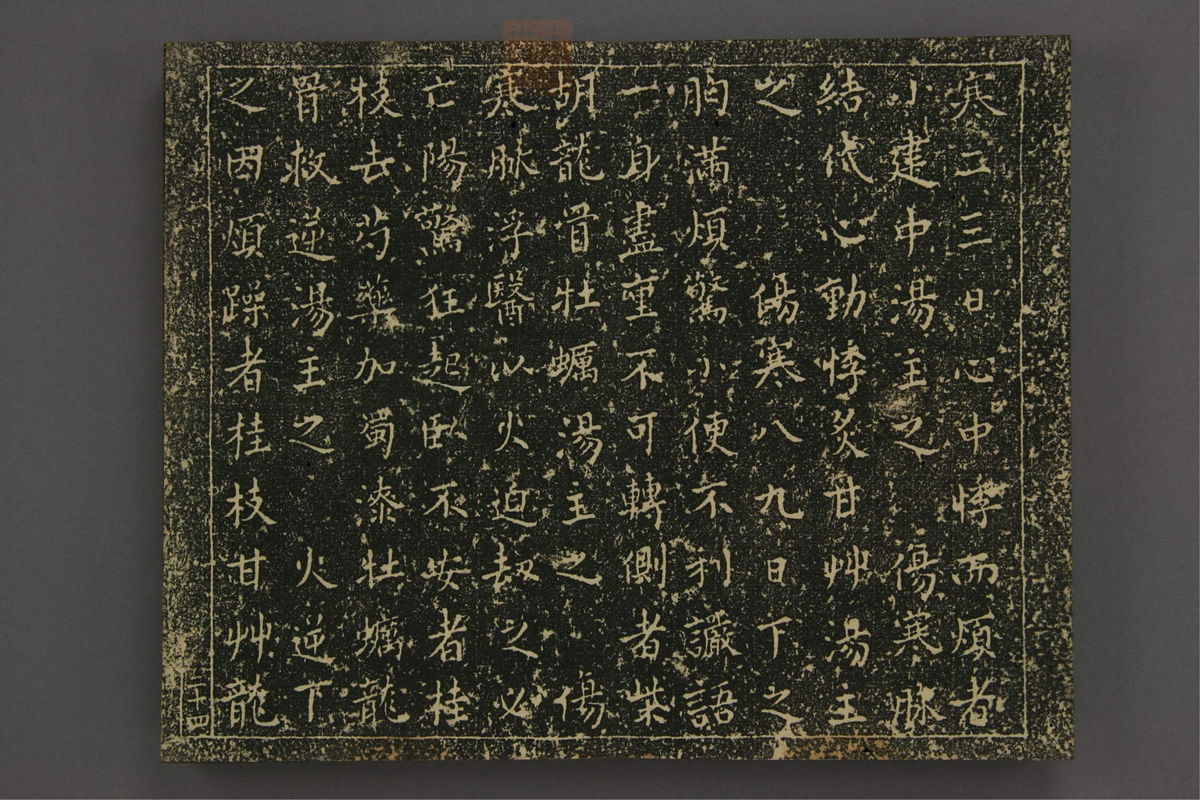 寒二三日心中悸而煩者
小建中湯主之 傷寒脉
結代心動悸炙甘艸湯主
之 傷寒八九日下之
胸滿煩驚小便不利讝語
一身盡重不可轉側者柴
胡龍骨牡蠣湯主之 傷
寒脉浮醫以火迫劫之必
亡陽驚狂起臥不安者桂
枝去芍藥加蜀漆牡蠣龍
骨救逆湯主之 火逆下
之因煩躁者桂枝甘艸龍
二十四